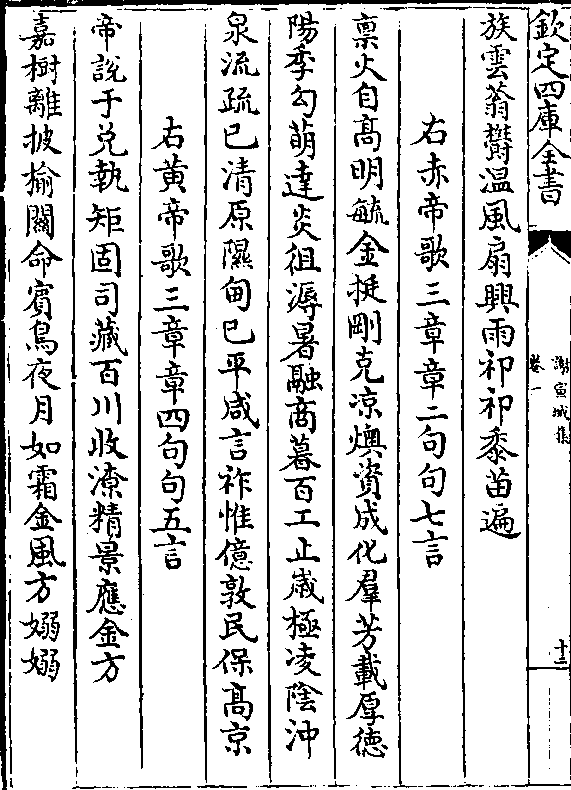 欽定四庫全書
謝宣城集
卷一
十二
族雲蓊鬱温風扇興雨祁祁黍苗遍
右赤帝歌三章章二句句七言
禀火自髙明毓金挺剛克凉燠資成化羣芳載厚德
陽季勾萌達炎徂溽暑融商暮百工止嵗極凌隂沖
泉流疏已清原隰甸已平咸言祚惟億敦民保髙京
右黄帝歌三章章四句句五言
帝說于兊執矩固司藏百川收潦精景應金方
嘉樹離披榆闗命賓鳥夜月如霜金風方嫋嫋